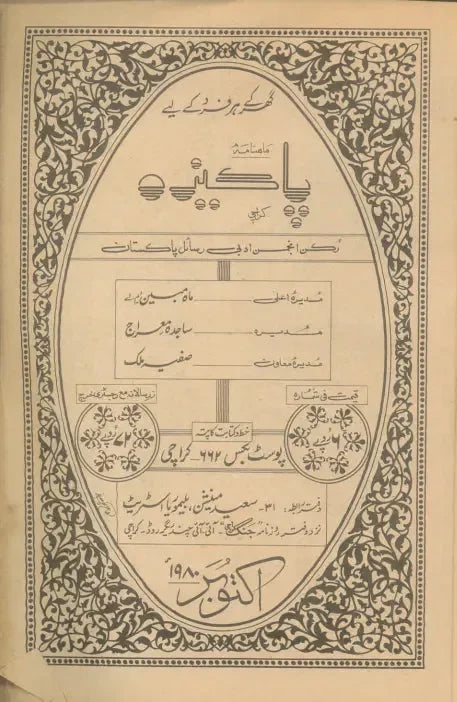 گھر کے ہر فرد کے لیے
ماہنامہ
پاکیزہ
کراچی
رکن انجمن ادبی رسائل پاکستان
مدیرہ اعلیٰ ـــــ ماہ مبین
مدیرہ ـــــ ساجدہ معراج
مدیرہ معاون ـــــ صفیہ ملک
قیمت فی شمارہ
۶ روپے
زر سالانہ مع رجسٹری خرچ
۷۲ روپے
خط و کتابت کا پتہ
پوسٹ بکس ۶۶۲ - کراچی
دفتر رابطہ: ۳۱- سعید مینشن، بلیموریا اسٹریٹ
نزد دفتر روزنامہ جنگ کراچی، آئی۔ آئی چندریگر روڈ۔ کراچی
اکتوبر ۱۹۸۰ء